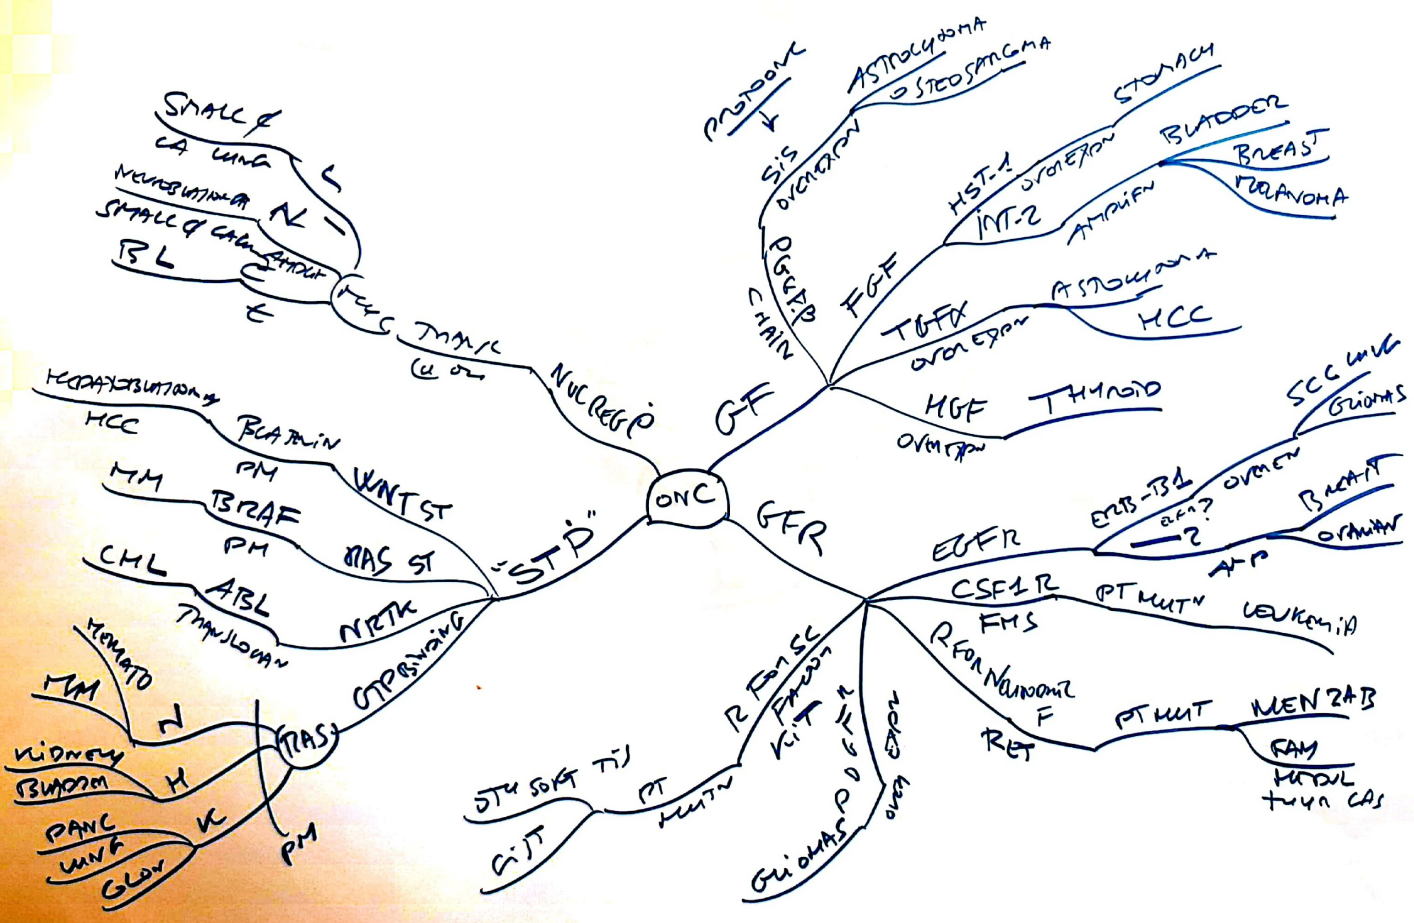 ONC
GF
PDGF.B
CHAIN
SIS
OVEREXPN
PROTOONC
ASTROCYTOMA
OSTEOSARCOMA
FGF
HST-1
OVEREXPN
STOMACH
INT-2
AMPLIFN
BLADDER
BREAST
MELANOMA
TGFα
OVEREXPN
ASTROCYTOMA
HCC
HGF
OVEREXPN
THYROID
GFR
EGFR
ERB-B1
OVEREXN
SCC LUNG
GLIOMAS
2
AMP
BREAST
OVARIAN
CSF1R
FMS
PT MUTN
LEUKEMIA
R FOR NEUROTR
F
RET
PT MUT
MEN 2AB
FAM
MEDUL
THYR CAS
PDGFR
OVER
GLIOMAS
R FOR SC
FACTOR
KIT
PT
MUTN
OTH SOFT TIS
GIST
"STP"
WNT ST
BCATNIN
PM
HEPATOBLASTOMA
HCC
RAS ST
BRAF
PM
MM
NRTK
ABL
TRANSLOCAN
CML
GTP BINDING
RAS
PM
N
HEMATO
MM
H
KIDNEY
BLADDER
K
PANC
LUNG
COLON
NUC REG P
MYC
L
SMALL ¢
CA LUNG
N
NEUROBLASTOMA
SMALL ¢ CA LUNG
C
t
BL